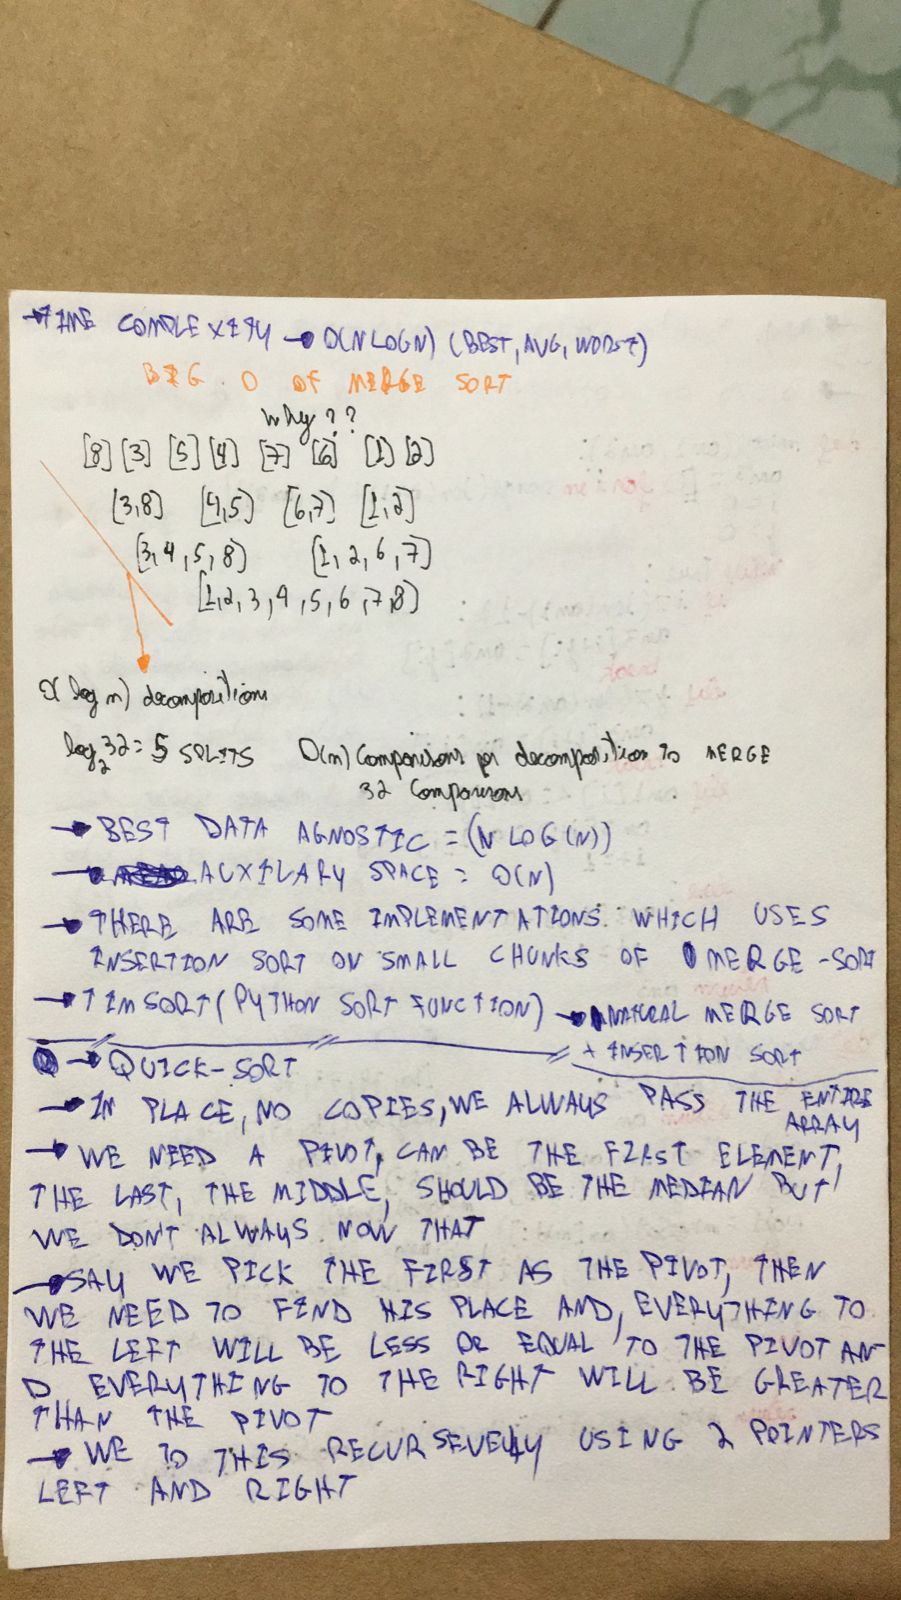 → TIME COMPLEXITY → O(N LOG N) (BEST, AVG, WORST)
BIG O OF MERGE SORT
Why??
[8] [3] [5] [4] [7] [6] [1] [2]
[3,8] [4,5] [6,7] [1,2]
[3,4,5,8] [1,2,6,7]
[1,2,3,4,5,6,7,8]
O(log n) decompositions
log₂32 = 5 SPLITS O(n) Comparisons per decomposition to MERGE
32 Comparisons
→ BEST DATA AGNOSTIC = (N LOG(N))
→ AUXILARY SPACE = O(N)
→ THERE ARE SOME IMPLEMENTATIONS WHICH USES
INSERTION SORT ON SMALL CHUNKS OF MERGE-SORT
→ TIMSORT (PYTHON SORT FUNCTION) → NATURAL MERGE SORT
+ INSERTION SORT
→ QUICK-SORT
→ IN PLACE, NO COPIES, WE ALWAYS PASS THE ENTIRE
ARRAY
→ WE NEED A PIVOT, CAN BE THE FIRST ELEMENT,
THE LAST, THE MIDDLE, SHOULD BE THE MEDIAN BUT
WE DON'T ALWAYS NOW THAT
→ SAY WE PICK THE FIRST AS THE PIVOT, THEN
WE NEED TO FIND HIS PLACE AND, EVERYTHING TO
THE LEFT WILL BE LESS OR EQUAL TO THE PIVOT AN-
D EVERYTHING TO THE RIGHT WILL BE GREATER
THAN THE PIVOT
→ WE TO THIS RECURSEVELY USING 2 POINTERS
LEFT AND RIGHT